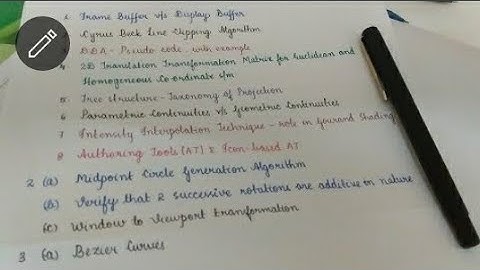 1 Frame Buffer v/s Display Buffer
2 Cyrus Beck Line Clipping Algorithm
3 DDA - Pseudo code with example
4 2D Translation Transformation Matrix for Euclidean and
Homogeneous Co-ordinate s/m
5 Tree structure - Taxonomy of Projection
6 Parametric Continuities v/s Geometric Continuities
7 Intensity Interpolation Technique - role in Gourand Shading
8 Authoring Tools [AT] & Icon-based AT
2 (a) Midpoint Circle Generation Algorithm
(b) Verify that 2 successive rotations are additive in nature
(c) Window to Viewport transformation
3 (a) Bezier Curves